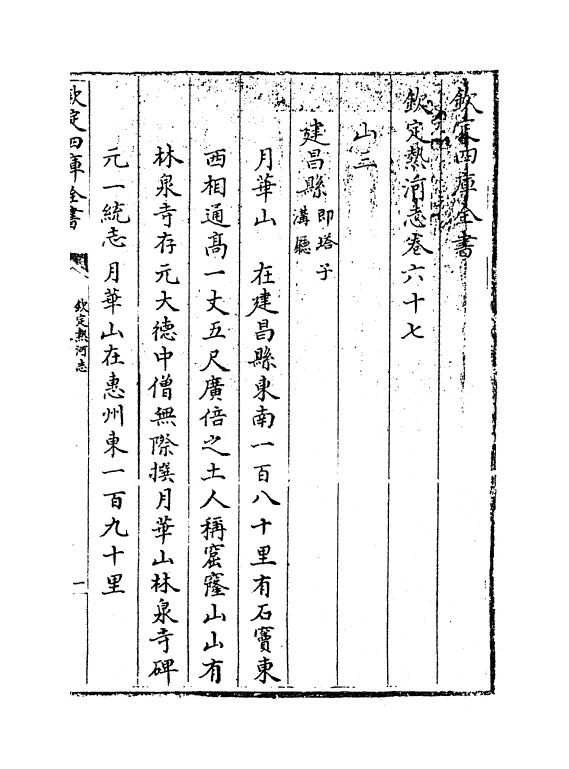 欽定四庫全書
欽定熱河志卷六十七
山三
建昌縣即塔子溝廳
月華山　在建昌縣東南一百八十里有石竇東
西相通髙一丈五尺廣倍之土人稱窟窿山山有
林泉寺存元大德中僧無際撰月華山林泉寺碑
元一統志月華山在惠州東一百九十里
欽定四庫全書
欽定熱河志
一